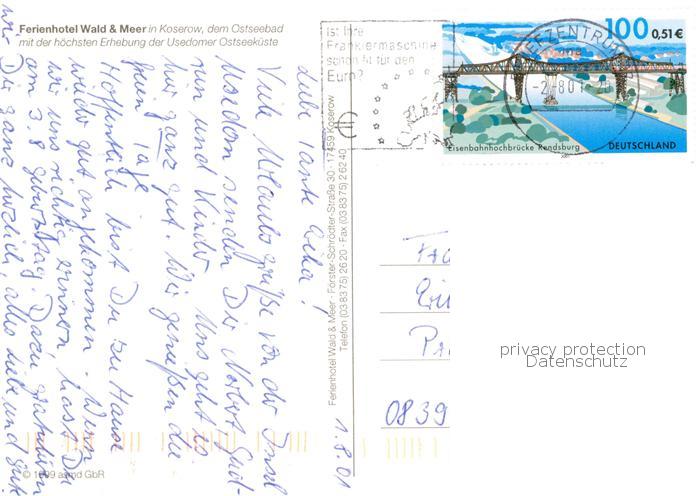 Ferienhotel Wald & Meer in Koserow, dem Ostseebad
mit der höchsten Erhebung der Usedomer Ostseeküste
Ist Ihre
Frankiermaschine
schon fit für den
Euro?
€
BRIEFZENTRUM
-2.-8.01
100 0,51€
Eisenbahnhochbrücke Rendsburg DEUTSCHLAND
1.8.01
Liebe Tante
Viele Urlaubsgrüße von der Insel
Usedom senden Dir Norbert,
und Kinder. Uns geht es
hier ganz gut. Wir genießen die
freien Tage.
Hoffentlich bist Du zu Hause
wieder gut angekommen. Wenn
wir uns richtig erinnern hast Du
am 3.8. Geburtstag. Dazu gratulieren
wir Dir ganz herzlich, alles Liebe und Gute
Ferienhotel Wald & Meer · Förster-Schrödter-Straße 30 · 17459 Koserow
Telefon (03 83 75) 26 20 · Fax (03 83 75) 2 62 40
0839
privacy protection
Datenschutz
© 1999 asmd GbR